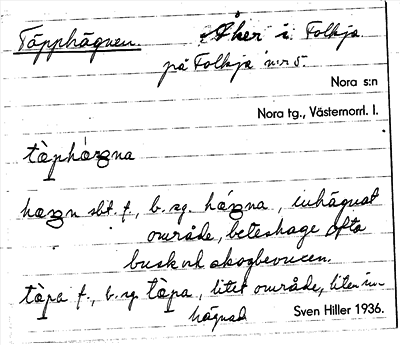 Täpphägnen. Åker i Folkja
på Folkja nr 5.
Nora s:n
Nora tg., Västernorrl. l.
tàpháᵹna
hæᵹn sbt. f., b. sg. háᵹna, inhägnat
område, beteshage ofta
busk och skogbevuxen.
tàpa f., b. sg. tàpa, litet område, liten in-
hägnad
Sven Hiller 1936.